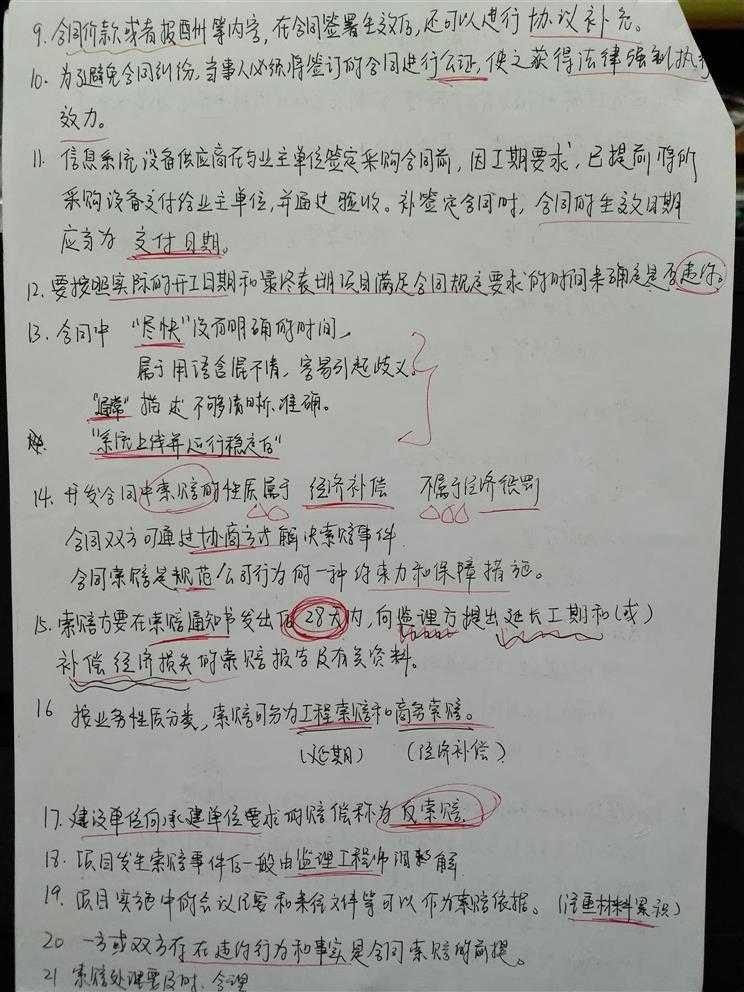 9. 合同价款或者报酬等内容，在合同签署生效后，还可以进行协议补充。
10. 为了避免合同纠纷，当事人必须将签订的合同进行公证，使之获得法律强制执行
效力。
11. 信息系统设备供应商在与业主单位签定采购合同前，因工期要求，已提前将所
采购设备交付给业主单位，并通过验收。补签定合同时，合同的生效日期
应当为 交付日期。
12. 要按照实际的开工日期和最终表明项目满足合同规定要求的时间来确定是否违约。
13. 合同中 "尽快"没有明确的时间，
属于用语含混不清，容易引起歧义。
"通常"描述不够清晰、准确。
"系统上线并运行稳定后"
14. 开发合同中索赔的性质属于 经济补偿 不属于经济惩罚
合同双方可通过协商方式解决索赔事件
合同索赔是规范公司行为的一种约束力和保障措施。
15. 索赔方要在索赔通知书发出后28天内，向监理方提出延长工期和(或)
补偿经济损失的索赔报告及有关资料。
16 按业务性质分类，索赔可分为工程索赔和商务索赔。
(延期) (经济补偿)
17. 建设单位向承建单位要求的赔偿称为反索赔.
18. 项目发生索赔事件后一般由监理工程师调解
19. 项目实施中的会议纪要和来往文件等可以作为索赔依据。(注重材料累积)
20 一方或双方存在违约行为和事实是合同索赔的前提。
21 索赔处理要及时、合理